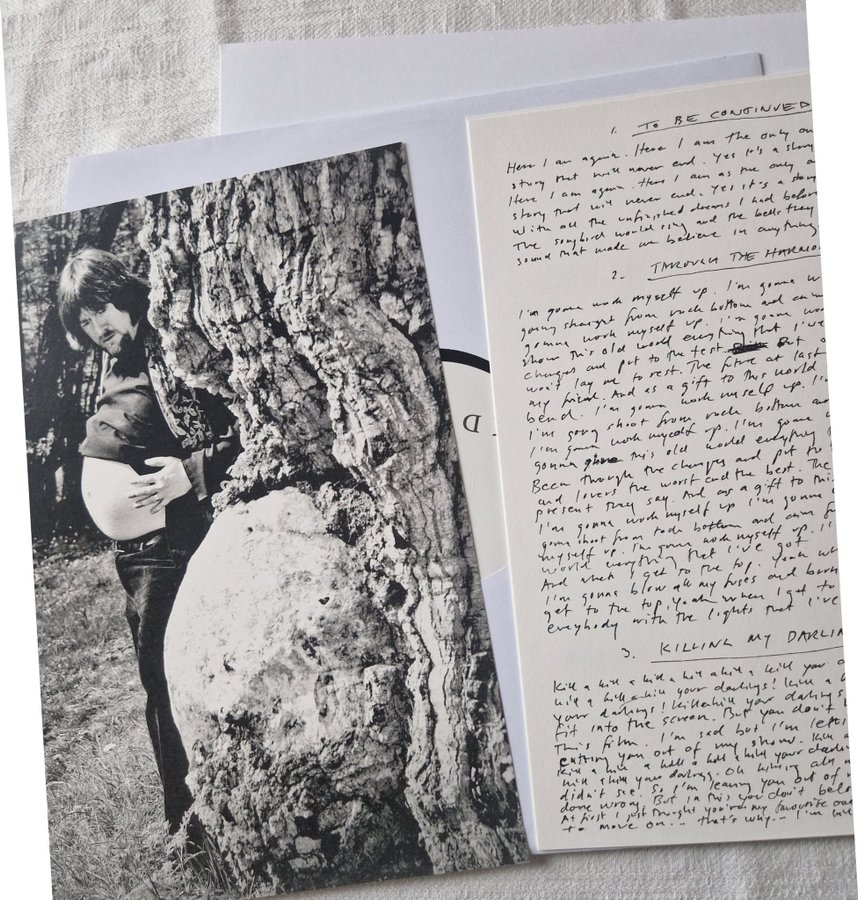 1. TO BE CONTINUED
Here I am again. Here I am the only on
story that will never end. Yes it's a story
Here I am again. Here I am as the only o
story that will never end. Yes it's a story
With all the unfinished dreams I had before
The songbird would sing and the bells they
sound that made me believe in anything
2. THROUGH THE HARMO
I'm gonna work myself up. I'm gonna w
going straight from rock bottom and
gonna work myself up. I'm gonna wor
show this old world everything that I've
changes and put to the test but
won't lay me to rest. The fire at last
my friend. And as a gift to this world
bend. I'm gonna work myself up. I'm
I'm gonna shoot from rock bottom and
I'm gonna work myself up. I'm gonna
gonna give this old world everything
Been through the changes and put to
and lovers the worst and the best. The
present they say. And as a gift to this
I'm gonna work myself up. I'm gonna
gonna shoot from rock bottom and aim f
myself up. I'm gonna work myself up. I'
world everything that I've got
And when I get to the top. Yeah wh
I'm gonna blow all my fuses and burn
get to the top. Yeah when I get to
everybody with the lights that I've
3. KILLING MY DARLIN
Kill a kill a kill a kill a kill a kill you
kill a kill a kill your darlings! Kill a k
your darlings! Kill a kill your darlings
fit into the screen. But you don't
this film. I'm sad but I'm left
cutting you out of my show. Kill
kill a kill a kill a kill a kill your darlin
kill a kill your darlings. Oh all
didn't see. So I'm leaving you out of
done wrong. But in this you don't belo
At first I just thought you're my favourite
to move on... that's why... I'm
D